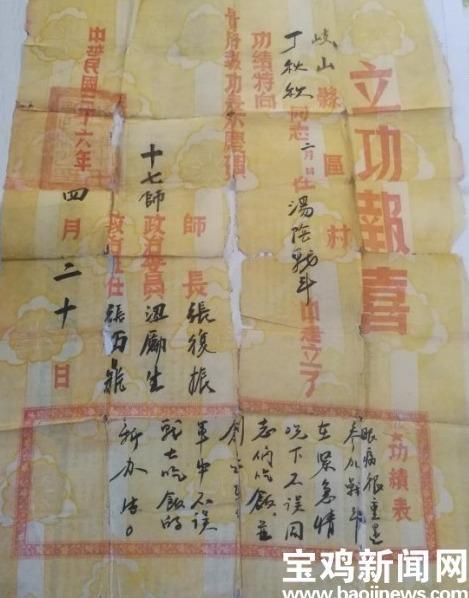 立功報喜
岐山縣 區 村
丁秋秋同志二月 日在湯陰戰斗中建立了
功績特向
貴府報功
師長張復振
十七師政治委員梁勵生
政治主任張西鼎
中華民國三十六年四月二十日
功績表
眼病很重還
參加戰斗
在緊急情
况下不误同
志们吃飯並
創
軍中不误
戰士吃飯的
新办法。
宝鸡新闻网
www.baojinews.com